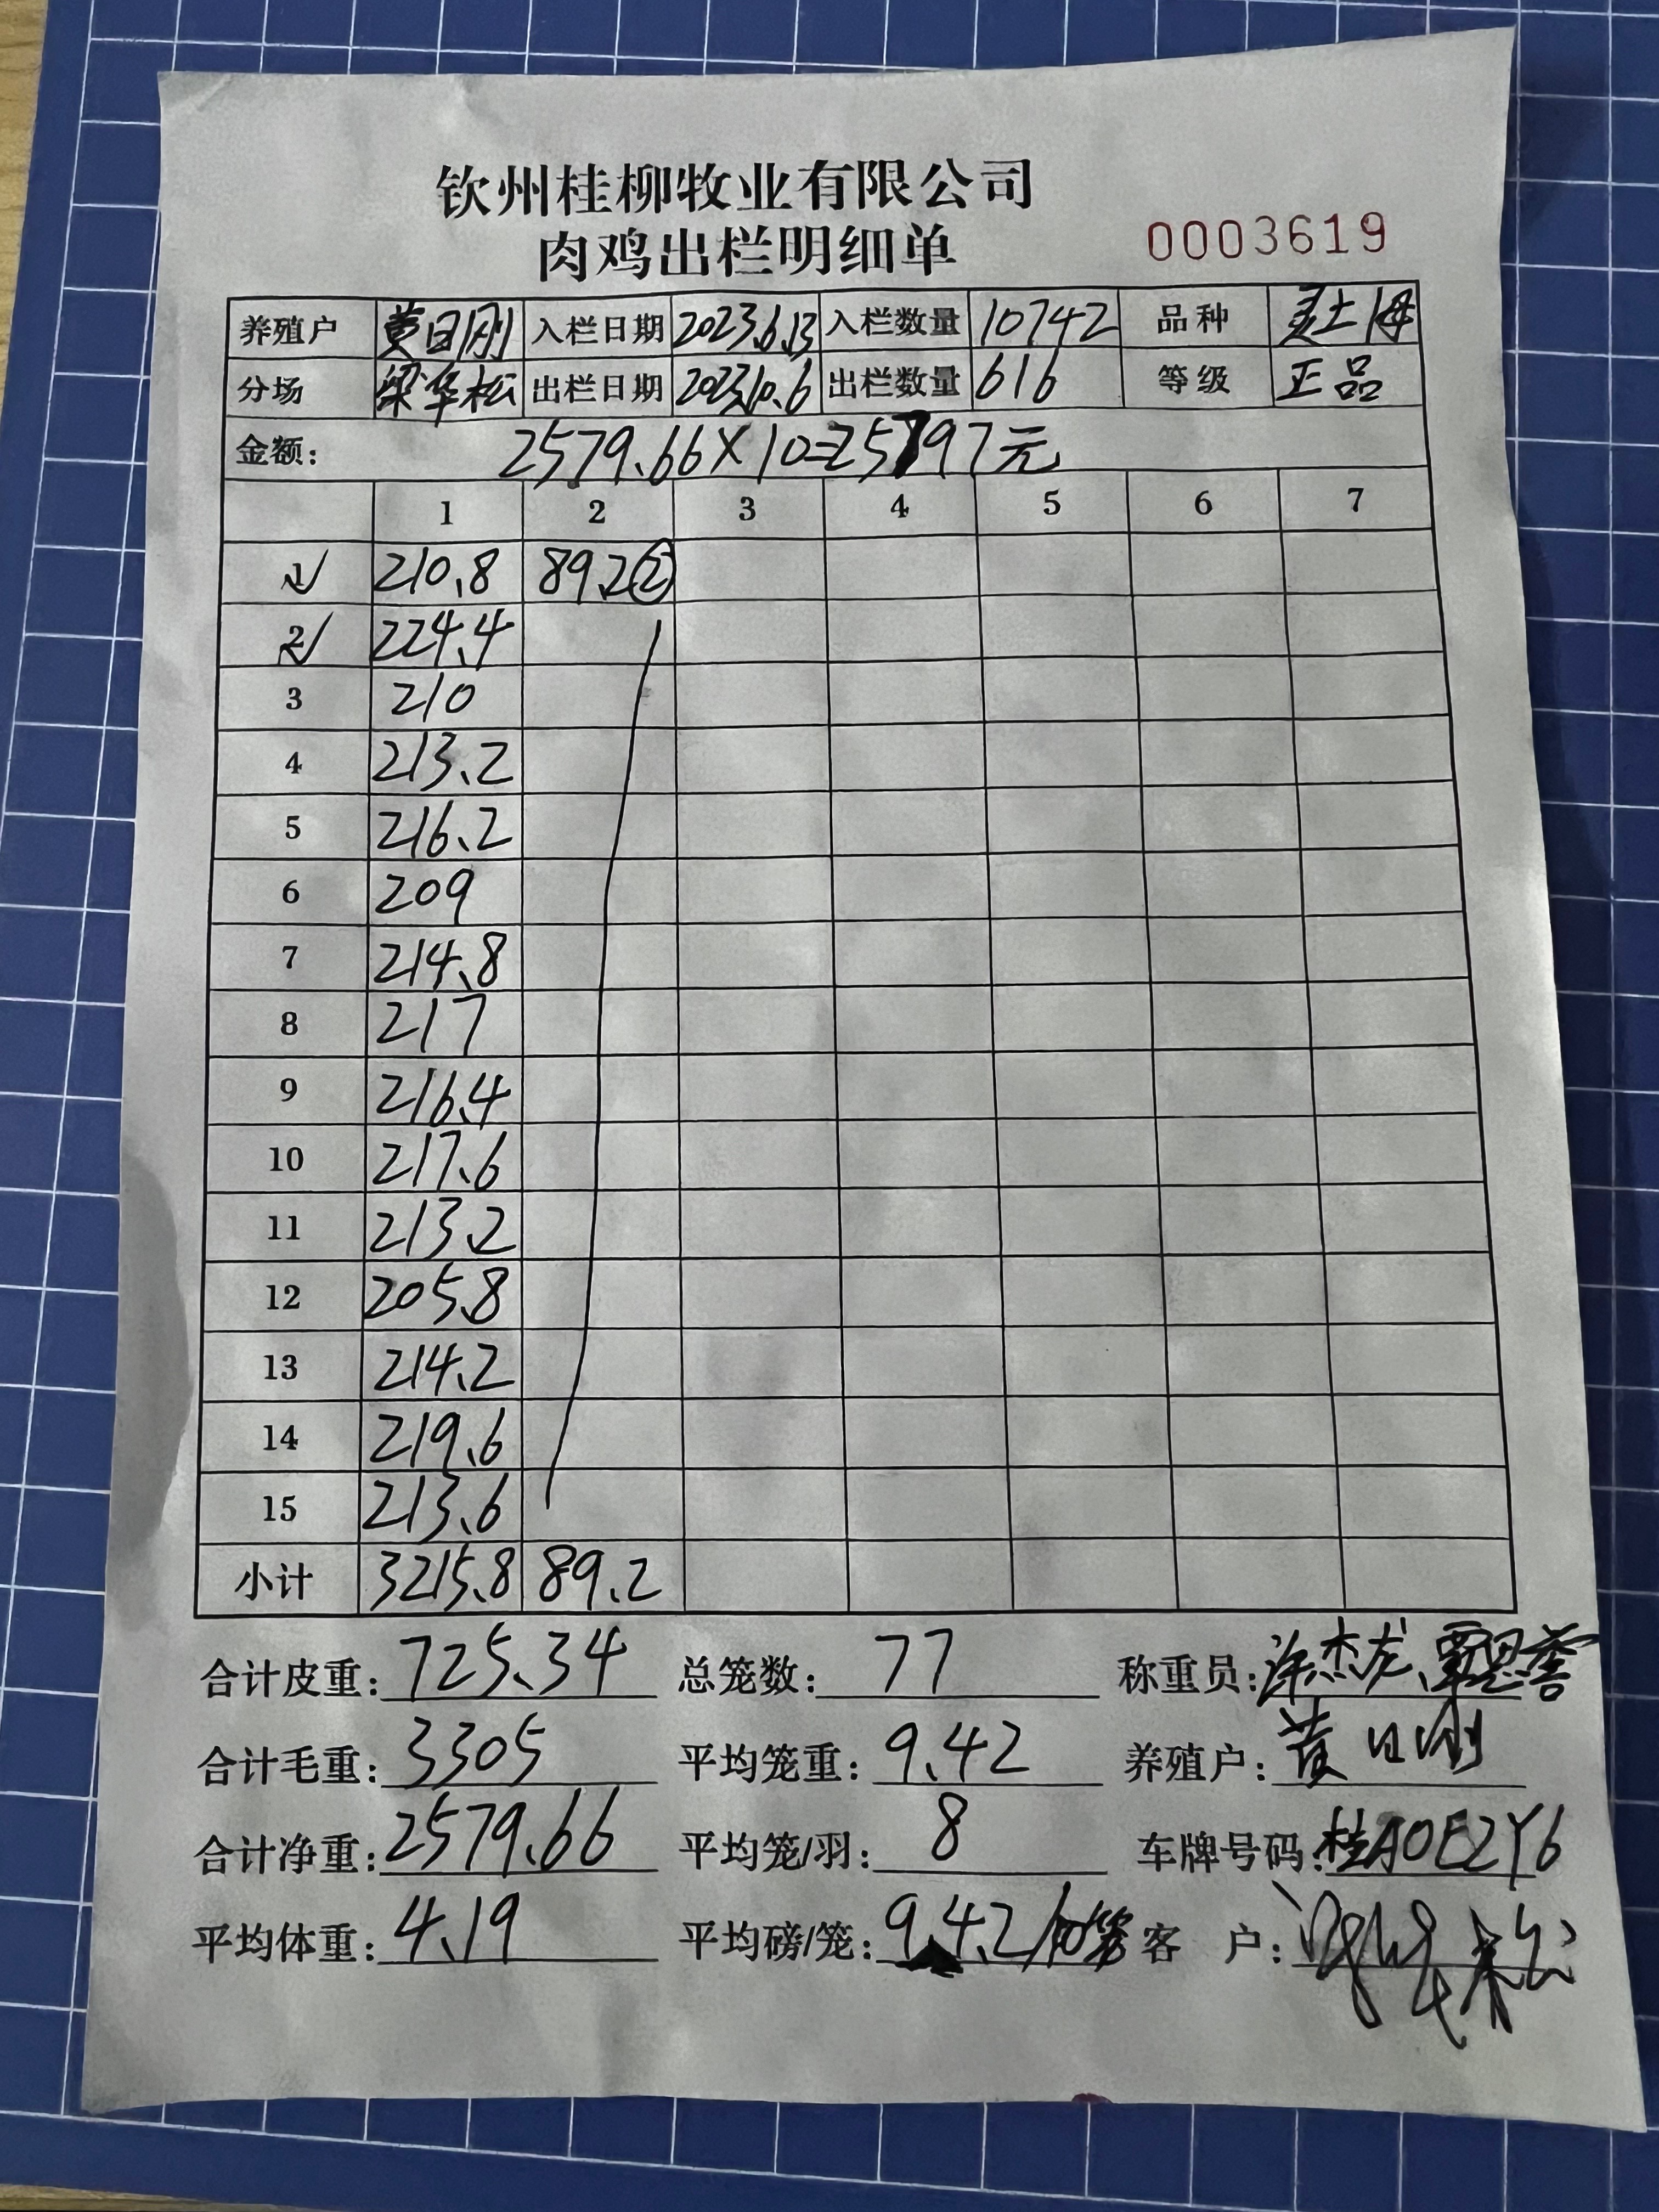 钦州桂柳牧业有限公司
肉鸡出栏明细单 0003619
养殖户 黄日刚 入栏日期 2023.6.13 入栏数量 10742 品种 土母
分场 梁华松 出栏日期 2023.10.6 出栏数量 616 等级 正品
金额: 2579.66×10=25797元
1 2 3 4 5 6 7
1√ 210.8 89.2②
2√ 224.4
3 210
4 213.2
5 216.2
6 209
7 214.8
8 217
9 216.4
10 217.6
11 213.2
12 205.8
13 214.2
14 219.6
15 213.6
小计 3215.8 89.2
合计皮重: 725.34 总笼数: 77 称重员: 许杰龙、覃思誉
合计毛重: 3305 平均笼重: 9.42 养殖户: 黄日刚
合计净重: 2579.66 平均笼/羽: 8 车牌号码: 桂A0E2Y6
平均体重: 4.19 平均磅/笼: 9.42/ 客 户: